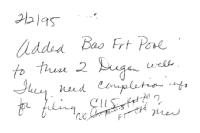 2/2/95
Added Bas Frt Pool
to these 2 Dugan wells.
They need completion info
for filing C115